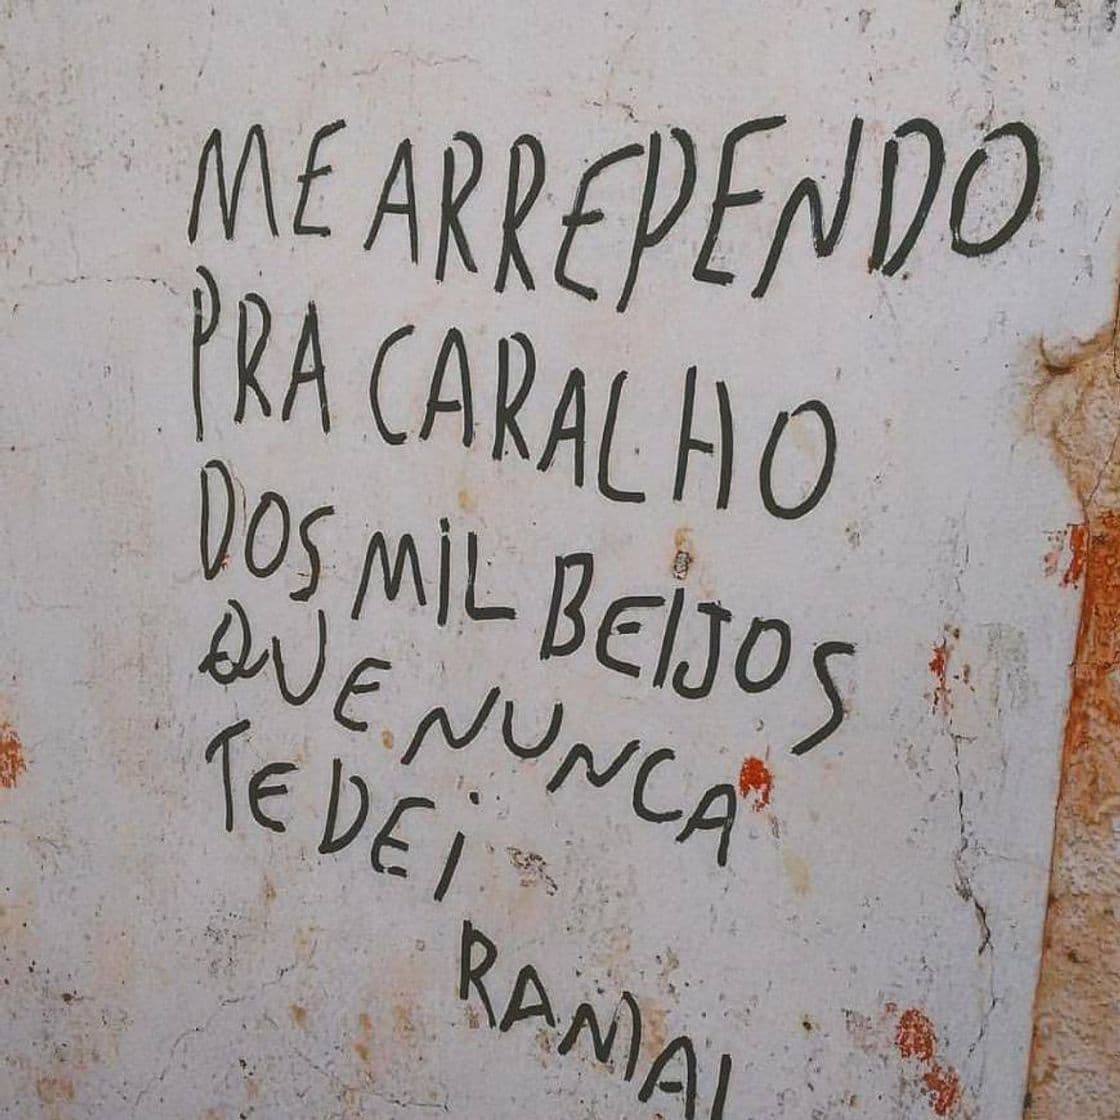 ME ARREPENDO
PRA CARALHO
DOS MIL BEIJOS
QUE NUNCA
TE DEI